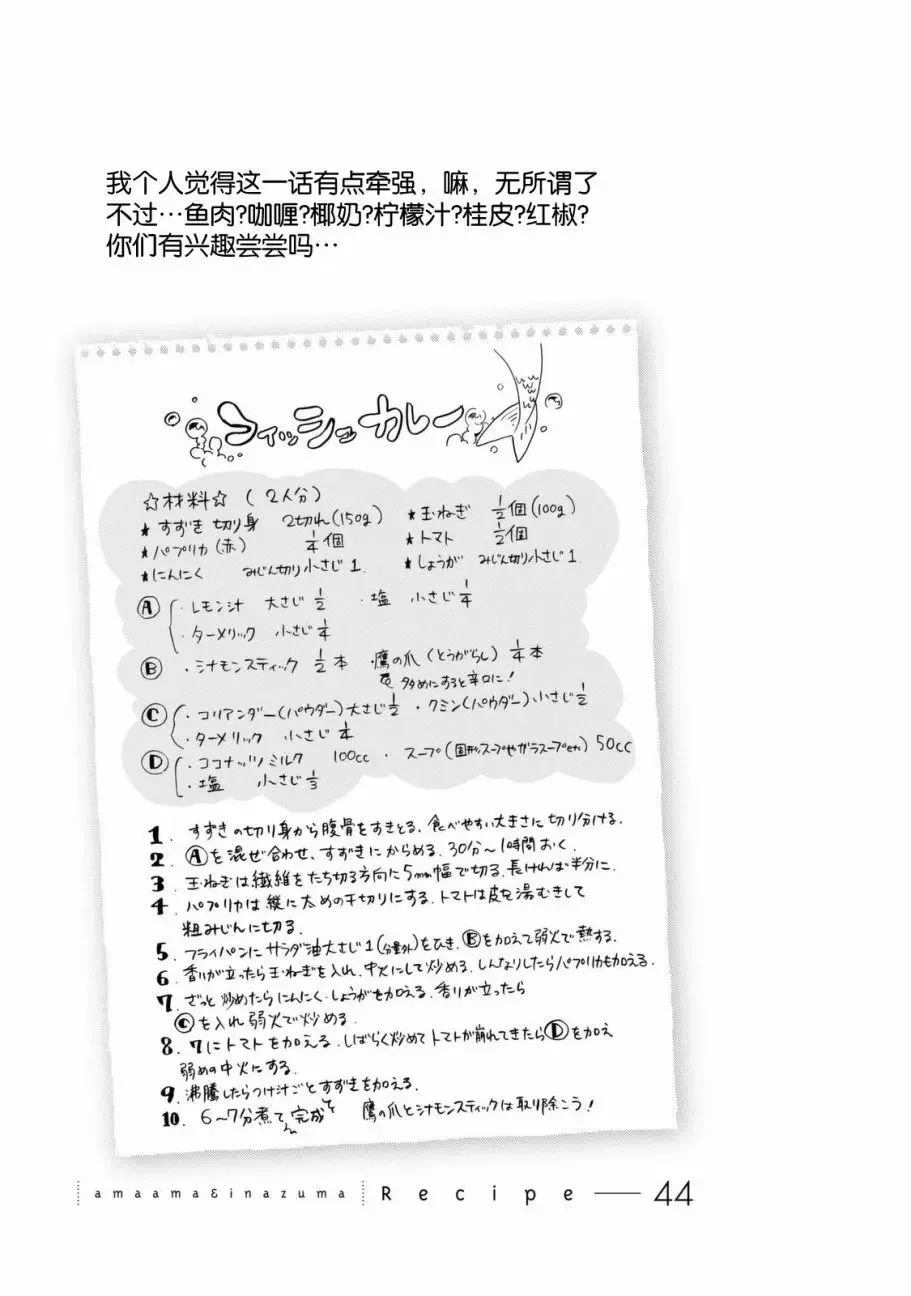 我个人觉得这一话有点牵强，嘛，无所谓了
不过…鱼肉?咖喱?椰奶?柠檬汁?桂皮?红椒?
你们有兴趣尝尝吗…
フィッシュカレー
☆材料☆ (2人分)
★すずき 切り身 2切れ(150g) ★玉ねぎ 1/2個(100g)
★パプリカ(赤) 1/4個 ★トマト 1/2個
★にんにく みじん切り小さじ1 ★しょうが みじん切り小さじ1
Ⓐ ・レモン汁 大さじ1/2 ・塩 小さじ1/4
・ターメリック 小さじ1/4
Ⓑ ・シナモンスティック 1/2本 ・鷹の爪(とうがらし) 1/4本
多めにすると辛口に!
Ⓒ ・コリアンダー(パウダー)大さじ1/2 ・クミン(パウダー)小さじ1/2
・ターメリック 小さじ1/4
Ⓓ ・ココナッツミルク 100cc ・スープ(固形スープやガラスープetc) 50cc
・塩 小さじ1/3
1. すずきの切り身から腹骨をすきとる。食べやすい大きさに切り分ける。
2. Ⓐを混ぜ合わせ、すずきにからめる。30分～1時間おく。
3. 玉ねぎは繊維をたち切る方向に5mm幅で切る。長ければ半分に。
4. パプリカは縦に太めの千切りにする。トマトは皮を湯むきして
粗みじんに切る。
5. フライパンにサラダ油大さじ1(分量外)をひき、Ⓑを加えて弱火で熱する。
6. 香りが立ったら玉ねぎを入れ、中火にして炒める。しんなりしたらパプリカも加える。
7. ざっと炒めたらにんにく・しょうがを加える。香りが立ったら
Ⓒを入れ弱火で炒める。
8. 7にトマトを加える。しばらく炒めてトマトが崩れてきたらⒹを加え
弱めの中火にする。
9. 沸騰したらつけ汁ごとすずきを加える。
10. 6～7分煮て、完成 鷹の爪とシナモンスティックは取り除こう!
amaama&inazuma Recipe — 44